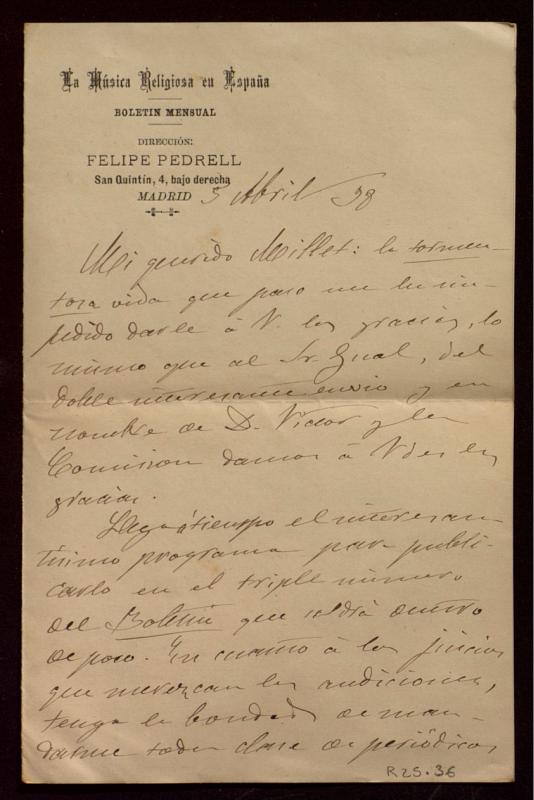 La Música Religiosa en España
BOLETIN MENSUAL
DIRECCIÓN:
FELIPE PEDRELL
San Quintín, 4, bajo derecha
MADRID 5 Abril 98
Mi querido Millet: la tormen-
tosa vida que paso me ha im-
pedido darle á V. las gracias, lo
mismo que al Sr Gual, del
doble interesante envio y en
nombre de D. Victor y la
Comision damos á Vdes las
gracias.
Llega á tiempo el interesan-
tísimo programa para publi-
carlo en el triple número
del Boletin que saldrá dentro
de poco. En cuanto á los juicios
que merezcan las audiciones,
tenga la bondad de man-
darme toda clase de periódicos
R25.36